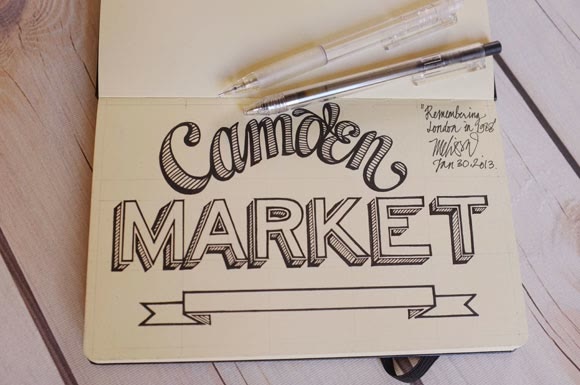 Camden
MARKET
"Remembering
London in 1988"
Melissa
Jan 30.2013.